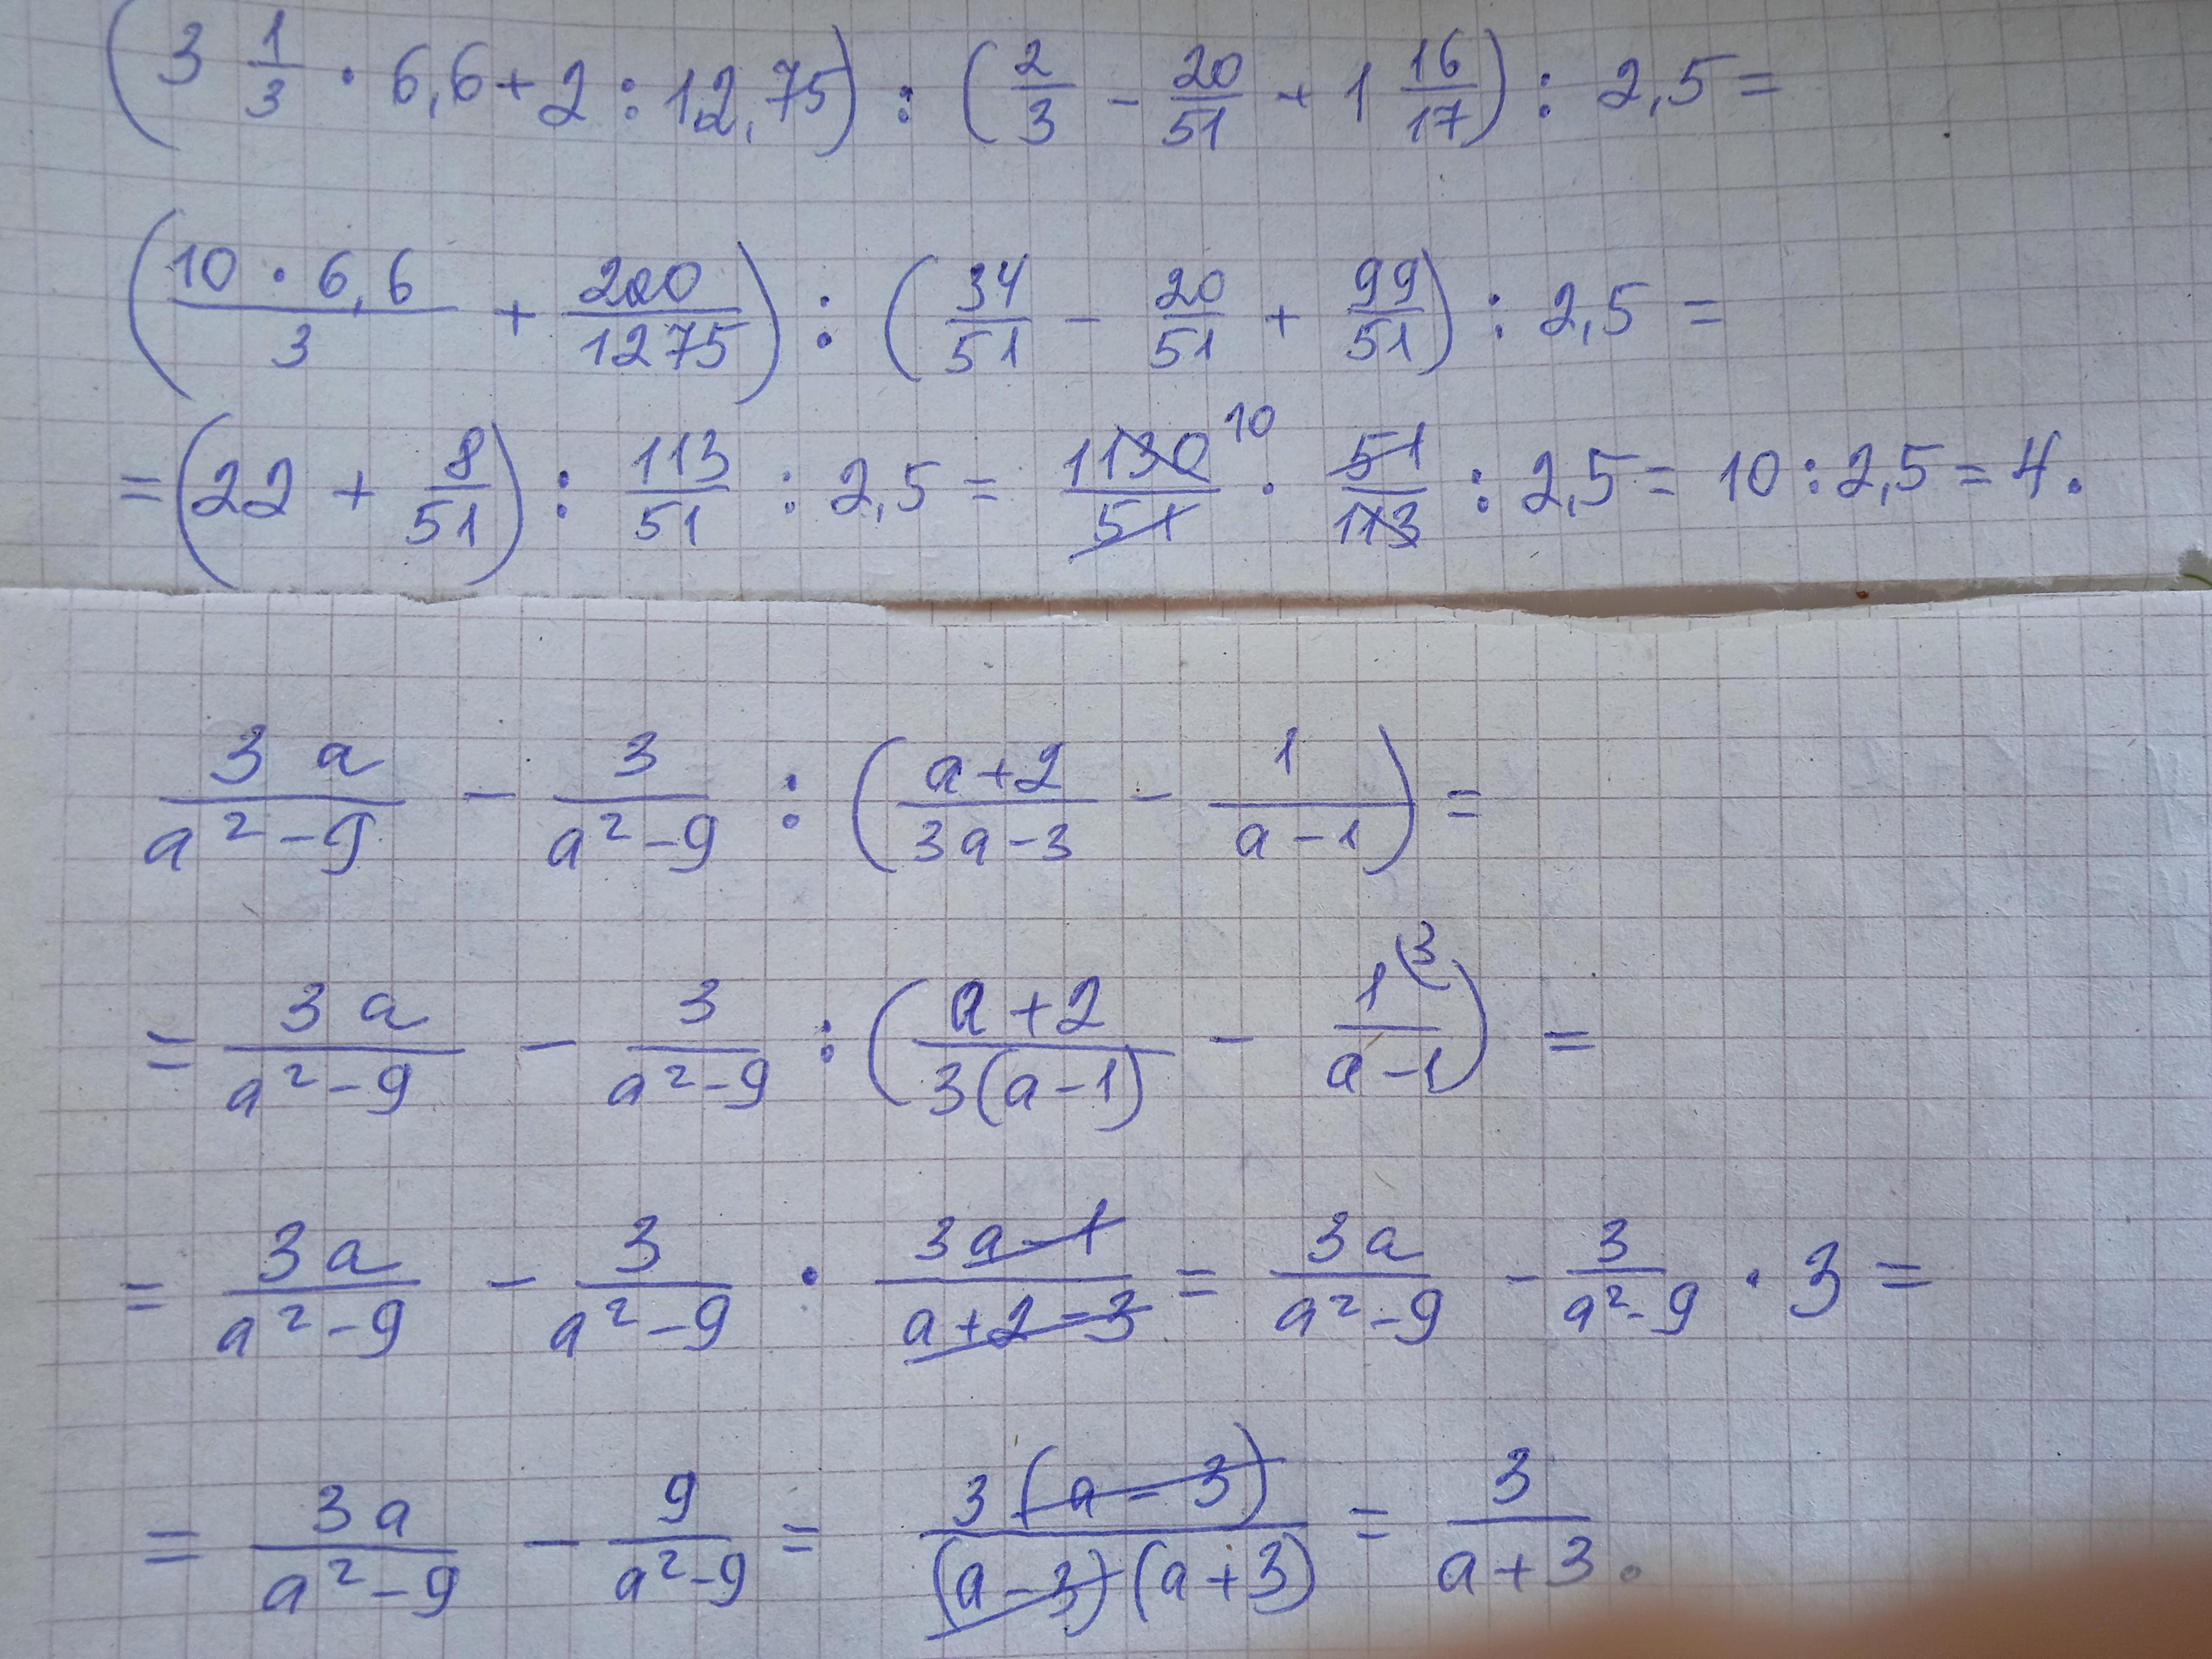 (3 1/3 · 6,6 + 2 : 12,75) : (2/3 - 20/51 + 1 16/17) : 2,5 =
(10 · 6,6/3 + 200/1275) : (34/51 - 20/51 + 99/51) : 2,5 =
= (22 + 8/51) : 113/51 : 2,5 = 1130/51 10 · 51/113 : 2,5 = 10 : 2,5 = 4.
3a/(a² - 9) - 3/(a² - 9) : ((a+2)/(3a-3) - 1/(a-1)) =
= 3a/(a² - 9) - 3/(a² - 9) : ((a+2)/(3(a-1)) - 1(3/(a-1)) =
= 3a/(a² - 9) - 3/(a² - 9) · (3a-1)/(a+2-3) = 3a/(a² - 9) - 3/(a² - 9) · 3 =
= 3a/(a² - 9) - 9/(a² - 9) = 3(a-3)/((a-3)(a+3)) = 3/(a+3).